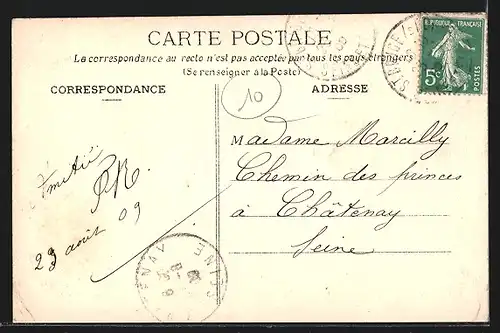 CARTE POSTALE
La correspondance au recto n'est pas acceptée par tous les pays étrangers
(Se renseigner à la Poste)
RÉPUBLIQUE FRANÇAISE
5c
POSTES
CORRESPONDANCE
ADRESSE
10
Amitié
PR.
23 août 09
Madame Marcilly
Chemin des princes
à Châtenay
Seine
SEINE